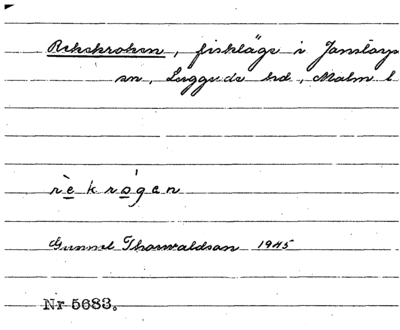 Rekekroken, fiskläge i Jonstorps
sn, Luggude hd, Malm l
rè̱ k rò̱gan
Gunnel Thorvaldson 1945
Nr 5683.